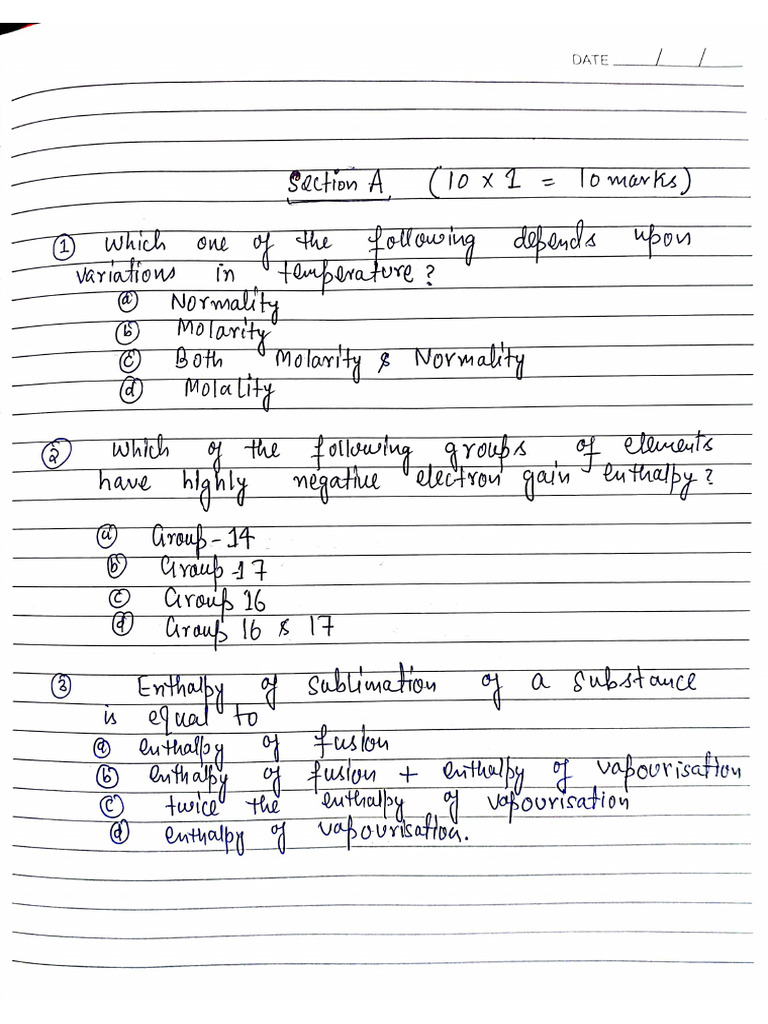 DATE / /
Section A (10 × 1 = 10 marks)
① Which one of the following depends upon
variations in temperature?
ⓐ Normality
ⓑ Molarity
ⓒ Both Molarity & Normality
ⓓ Molality
② Which of the following groups of elements
have highly negative electron gain enthalpy?
ⓐ Group-14
ⓑ Group-17
ⓒ Group 16
ⓓ Group 16 & 17
③ Enthalpy of sublimation of a substance
is equal to
ⓐ enthalpy of fusion
ⓑ enthalpy of fusion + enthalpy of vapourisation
ⓒ twice the enthalpy of vapourisation
ⓓ enthalpy of vapourisation.